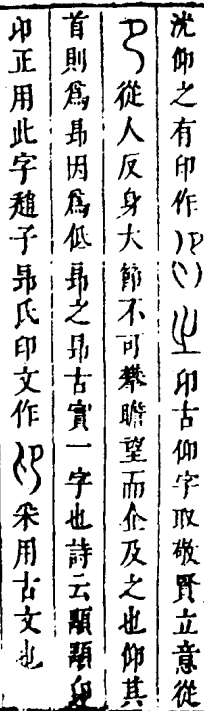 仰之有印作卬古仰字取敬賢立意從
從人反身大節不可攀瞻望而企及之也仰其
首則爲昻因爲低昻之昻古實一字也詩云顒顒卬
卬正用此字趙子昻氏印文作采用古文也